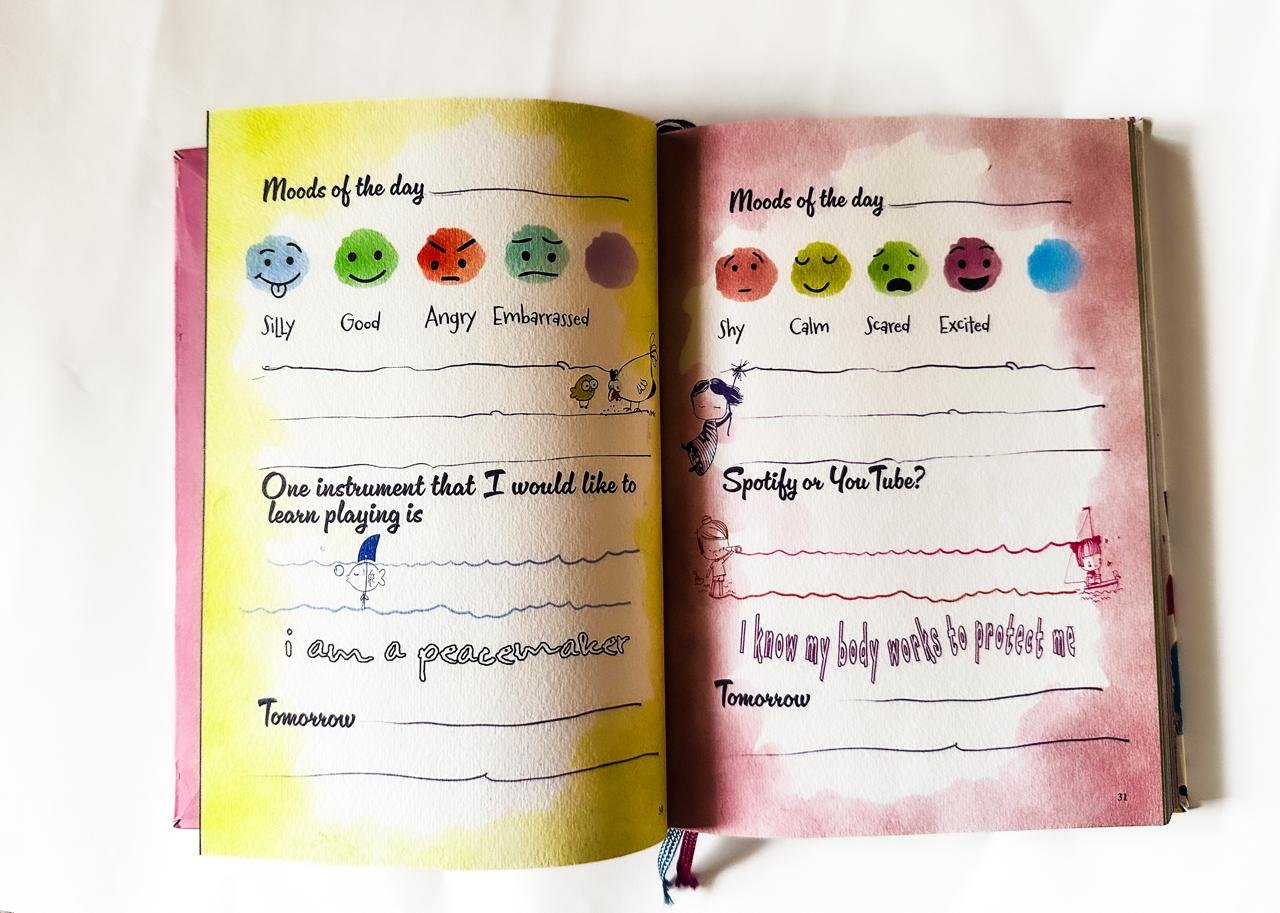 Moods of the day
Silly Good Angry Embarrassed
One instrument that I would like to
learn playing is
i am a peacemaker
Tomorrow
Moods of the day
Shy Calm Scared Excited
Spotify or YouTube?
I know my body works to protect me
Tomorrow
31